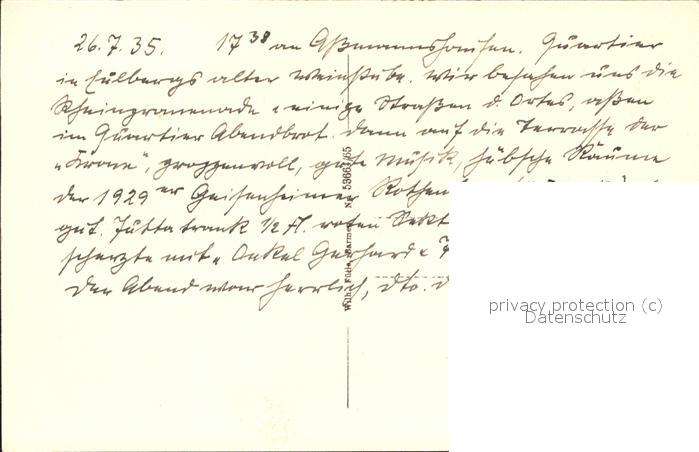 26.7.35. 17³⁸ an Aßmannshausen. Quartier
in Eulbergs alter Weinstube. Wir besahen uns die
Rheinpromenade u. einige Straßen d. Ortes, aßen
im Quartier Abendbrot. Dann auf die Terrasse der
„Krone", proppenvoll, gute Musik, hübsche Räume
der 1929er Geisenheimer Rothen
gut. Jutta trank 1/2 Fl. roten Sekt
scherzte mit „Onkel Gerhard"
Der Abend war herrlich, dto. d
Wilh. Fülle, Barmen Nr. 53663/65
privacy protection (c)
Datenschutz